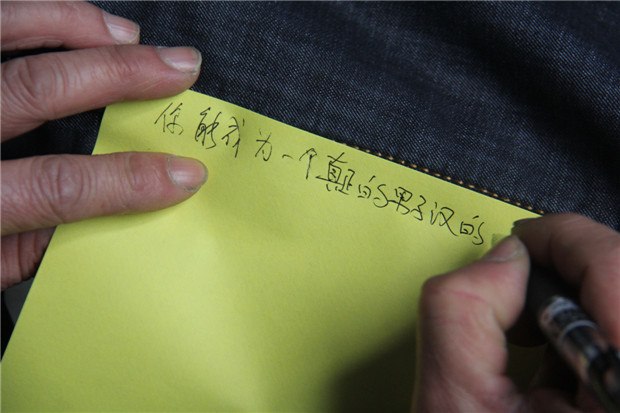 你能成为一个真正的男子汉的